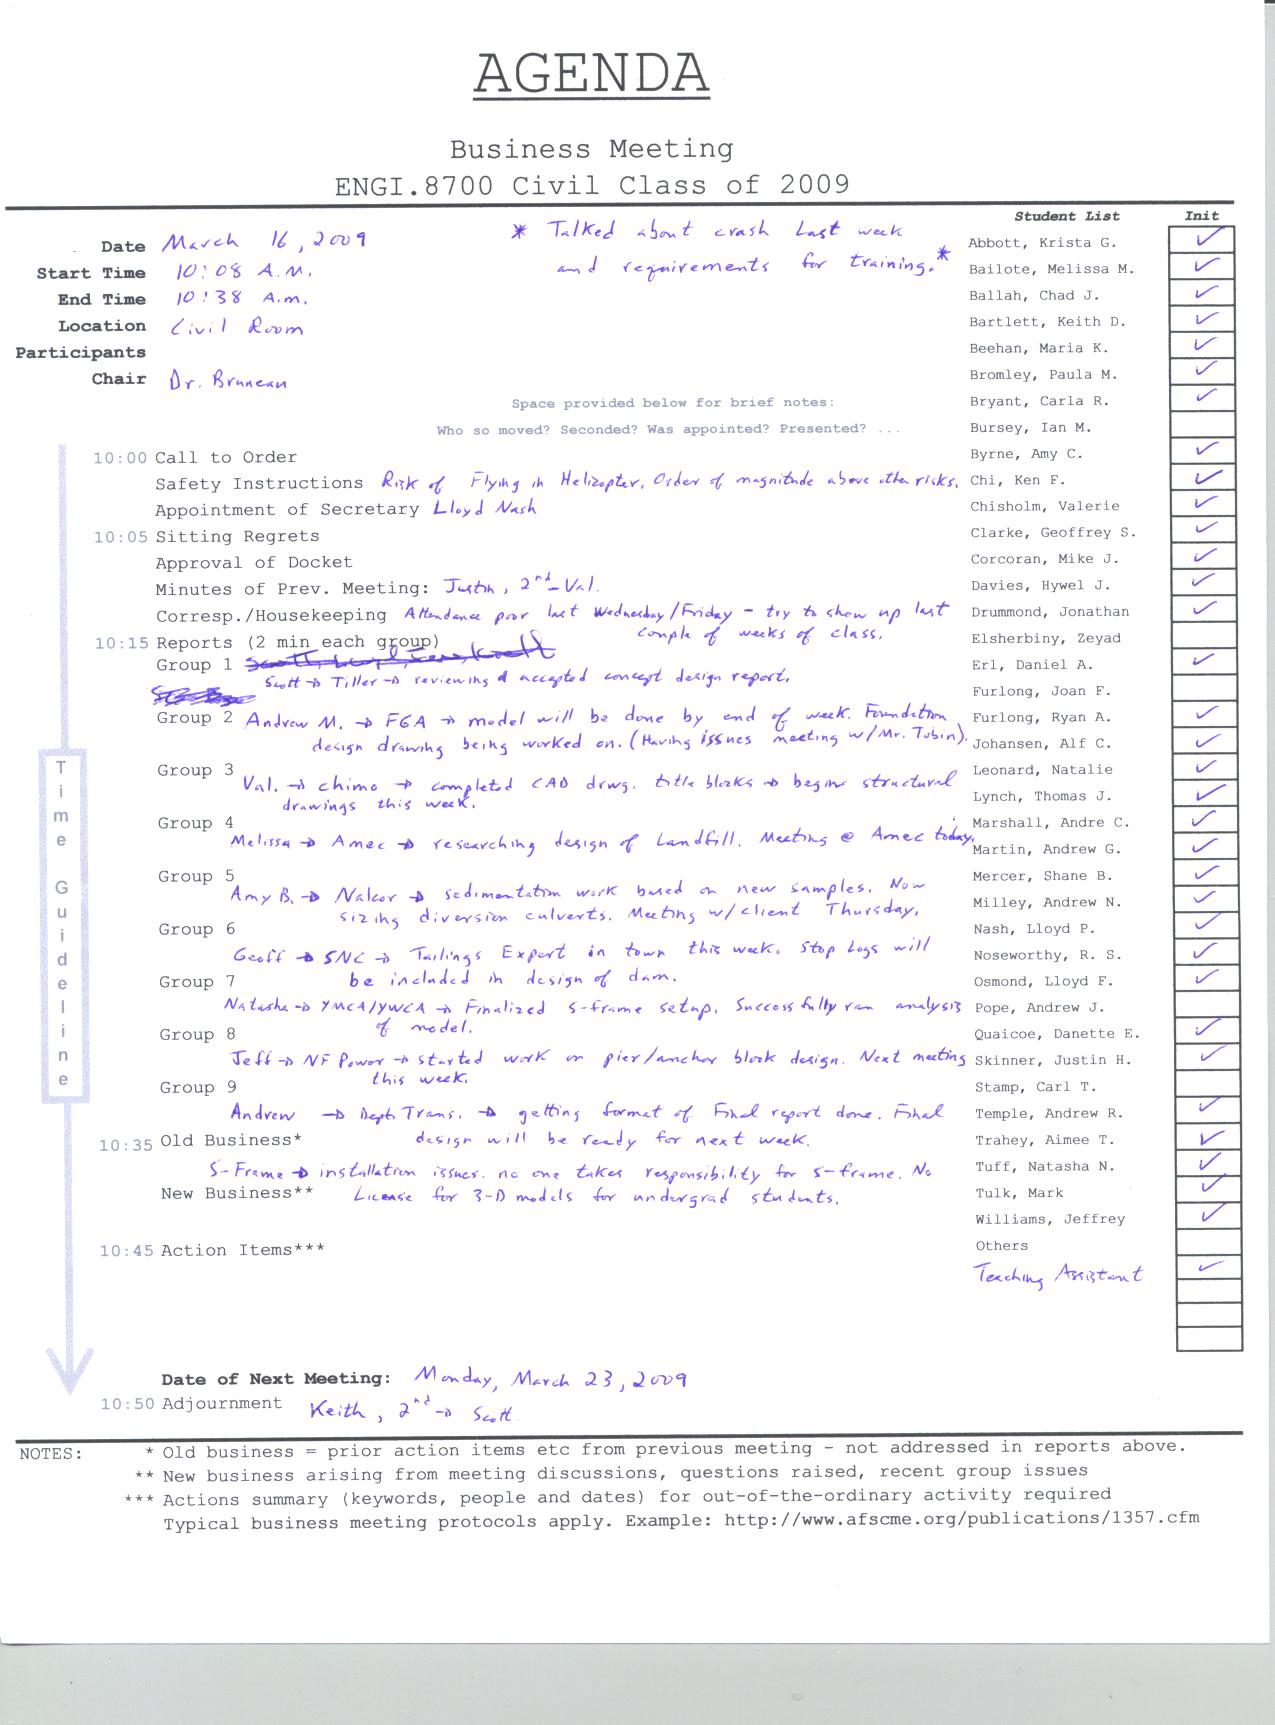 AGENDA
Business Meeting
ENGI.8700 Civil Class of 2009
Student List Init
Date March 16, 2009
* Talked about crash last week
and requirements for training. *
Start Time 10:08 A.M.
End Time 10:38 A.m.
Location Civil Room
Participants
Chair Dr. Bruneau
Space provided below for brief notes:
Who so moved? Seconded? Was appointed? Presented? ...
10:00 Call to Order
Safety Instructions Risk of Flying in Helicopter, Order of magnitude above other risks.
Appointment of Secretary Lloyd Nash
10:05 Sitting Regrets
Approval of Docket
Minutes of Prev. Meeting: Justin, 2nd - Val.
Corresp./Housekeeping Attendance poor last Wednesday/Friday - try to show up last
couple of weeks of class.
10:15 Reports (2 min each group)
Group 1
Scott → Tiller → reviewing & accepted concept design report.
Group 2 Andrew M. → FGA → model will be done by end of week. Foundation
design drawing being worked on. (Having issues meeting w/Mr. Tobin).
Group 3 Val. → chimo → completed CAD drwg. title blocks → begin structural
drawings this week.
Group 4
Melissa → Amec → researching design of Landfill. Meeting @ Amec today.
Group 5
Amy B. → Nalcor → sedimentation work based on new samples. Now
sizing diversion culverts. Meeting w/client Thursday.
Group 6
Geoff → SNC → Tailings Expert in town this week. Stop Logs will
be included in design of dam.
Group 7
Natasha → YMCA/YWCA → Finalized S-frame setup. Successfully ran analysis
of model.
Group 8
Jeff → NF Power → started work on pier/anchor block design. Next meeting
this week.
Group 9
Andrew → Dept. Trans. → getting format of Final report done. Final
design will be ready for next week.
10:35 Old Business*
S-Frame → installation issues. no one takes responsibility for s-frame. No
License for 3-D models for undergrad students.
New Business**
10:45 Action Items***
Date of Next Meeting: Monday, March 23, 2009
10:50 Adjournment Keith, 2nd → Scott
Time Guideline
Abbott, Krista G.
Bailote, Melissa M.
Ballah, Chad J.
Bartlett, Keith D.
Beehan, Maria K.
Bromley, Paula M.
Bryant, Carla R.
Bursey, Ian M.
Byrne, Amy C.
Chi, Ken F.
Chisholm, Valerie
Clarke, Geoffrey S.
Corcoran, Mike J.
Davies, Hywel J.
Drummond, Jonathan
Elsherbiny, Zeyad
Erl, Daniel A.
Furlong, Joan F.
Furlong, Ryan A.
Johansen, Alf C.
Leonard, Natalie
Lynch, Thomas J.
Marshall, Andre C.
Martin, Andrew G.
Mercer, Shane B.
Milley, Andrew N.
Nash, Lloyd P.
Noseworthy, R. S.
Osmond, Lloyd F.
Pope, Andrew J.
Quaicoe, Danette E.
Skinner, Justin H.
Stamp, Carl T.
Temple, Andrew R.
Trahey, Aimee T.
Tuff, Natasha N.
Tulk, Mark
Williams, Jeffrey
Others
Teaching Assistant
NOTES: * Old business = prior action items etc from previous meeting - not addressed in reports above.
** New business arising from meeting discussions, questions raised, recent group issues
*** Actions summary (keywords, people and dates) for out-of-the-ordinary activity required
Typical business meeting protocols apply. Example: http://www.afscme.org/publications/1357.cfm